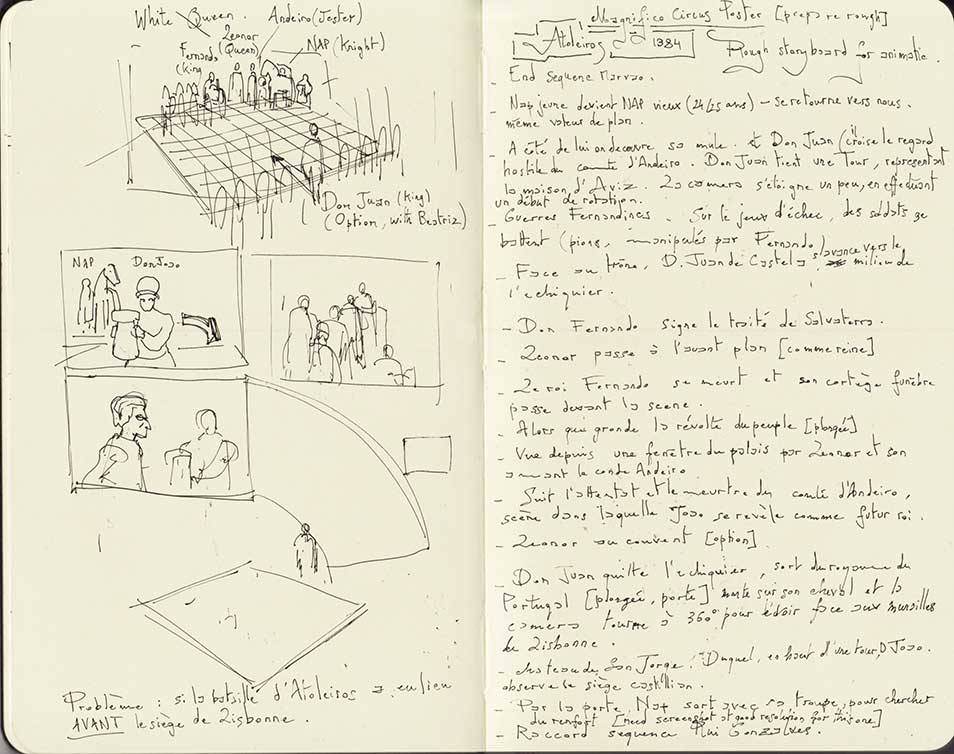 White Queen.
Andeiro (Jester)
Leonor
(Queen)
Fernando
(King
NAP (Knight)
Don Juan (King)
(Option, with Beatriz)
NAP
Don Joao
Problème : si la bataille d'Atoleiros a eu lieu
AVANT le siège de Lisbonne.
Magnifico Circus Poster [prepare rough]
Atoleiros 1384
Rough storyboard for animatic.
- End sequence Marvao.
- Nap jeune devient NAP vieux (24/25 ans) - se retourne vers nous.
même valeur de plan.
- A côté de lui on découvre sa mule. et Don Juan (il croise le regard
hostile du comte d'Andeiro. Don Juan tient une Tour, représentant
la maison d'Aviz. La camera s'éloigne un peu, en effectuant
un début de rotation.
- Guerres Fernandines. Sur le jeux d'échec, des soldats se
battent (pions, manipulés par Fernando)
- Face au trône, D. Juan de Castela s'avance vers le
milieu de
l'echiquier.
- Don Fernando signe le traité de Salvaterra.
- Leonor passe à l'avant plan [comme reine]
- Le roi Fernando se meurt et son cortège funèbre
passe devant la scene.
- Alors que gronde la révolte du peuple [plongée]
- Vue depuis une fenêtre du palais par Leonor et son
amant le conde Andeiro
- Suit l'attentat et le meurtre du comte d'Andeiro,
scène dans laquelle Joao se revèle comme futur roi.
- Leonor au couvent [option]
- Don Juan quitte l'echiquier, sort du royaume du
Portugal [plongée, porte] monte sur son cheval et la
caméra tourne à 360° pour être face aux murailles
de Lisbonne.
- chateau de San Jorge. Duquel, en haut d'une tour, D Joao.
observe le siège castillan.
- Par la porte, Nap sort avec sa troupe, pour chercher
du renfort [need screenshot at good resolution for this one]
- Raccord sequence Rui Gonzalves.